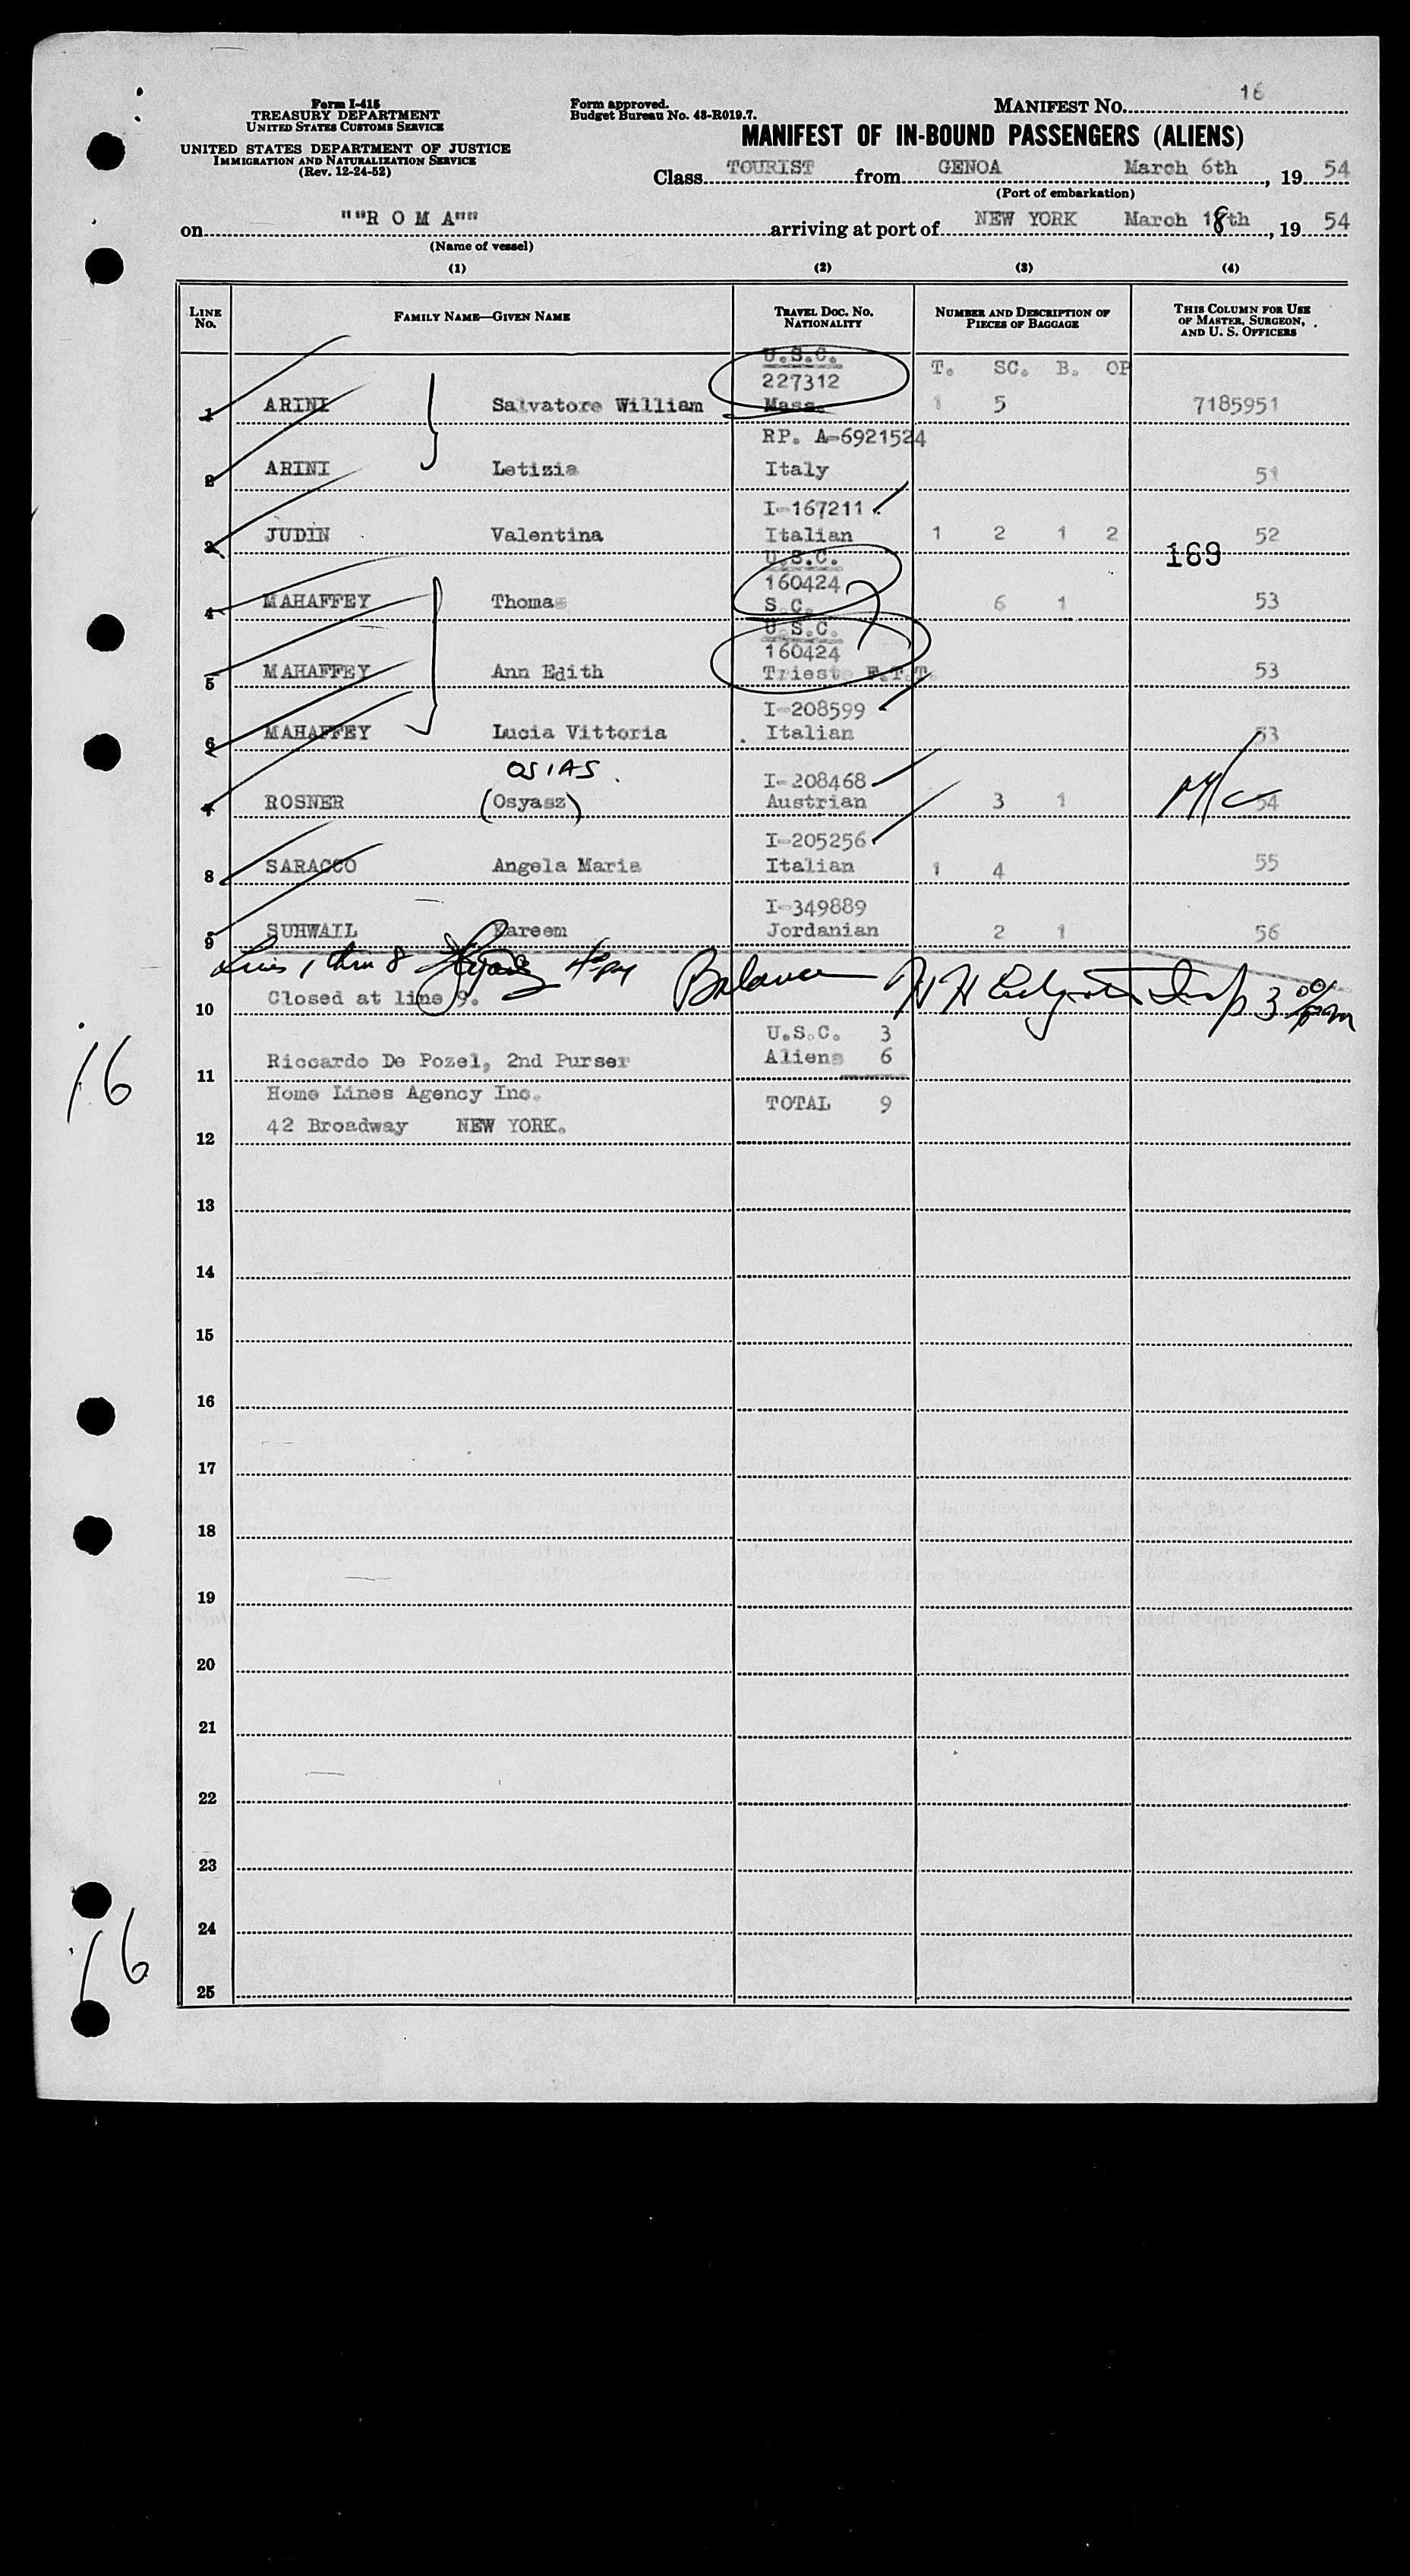 Form I-415
TREASURY DEPARTMENT
UNITED STATES CUSTOMS SERVICE
UNITED STATES DEPARTMENT OF JUSTICE
IMMIGRATION AND NATURALIZATION SERVICE
(Rev. 12-24-52)
Form approved.
Budget Bureau No. 43-R019.7.
MANIFEST NO. 16
MANIFEST OF IN-BOUND PASSENGERS (ALIENS)
Class TOURIST from GENOA March 6th, 19 54
(Port of embarkation)
on ""R O M A"" arriving at port of NEW YORK March 18th, 19 54
(Name of vessel)
(1) (2) (3) (4)
LINE No. FAMILY NAME—GIVEN NAME TRAVEL DOC. NO. NATIONALITY NUMBER AND DESCRIPTION OF PIECES OF BAGGAGE THIS COLUMN FOR USE OF MASTER, SURGEON, AND U. S. OFFICERS
U.S.C. T. SC. B. OP
227312
1 ARINI Salvatore William Mass. 1 5 7185951
RP. A-6921524
2 ARINI Letizia Italy 51
I-167211
3 JUDIN Valentina Italian 1 2 1 2 52
169
U.S.C.
160424
4 MAHAFFEY Thomas S.C. 6 1 53
U.S.C.
160424
5 MAHAFFEY Ann Edith Trieste F.T.T. 53
I-208599
6 MAHAFFEY Lucia Vittoria Italian 53
OSIAS
I-208468
7 ROSNER (Osyasz) Austrian 3 1 54
M/c
I-205256
8 SARACCO Angela Maria Italian 1 4 55
I-349889
9 SUHWAIL Kareem Jordanian 2 1 56
Lines 1 thru 8
Balance
Insp 3 00 pm
10 Closed at line 9.
U.S.C. 3
11 Riccardo De Pozel, 2nd Purser Aliens 6
Home Lines Agency Inc.
TOTAL 9
12 42 Broadway NEW YORK.
13
14
15
16
17
18
19
20
21
22
23
24
25
16
16